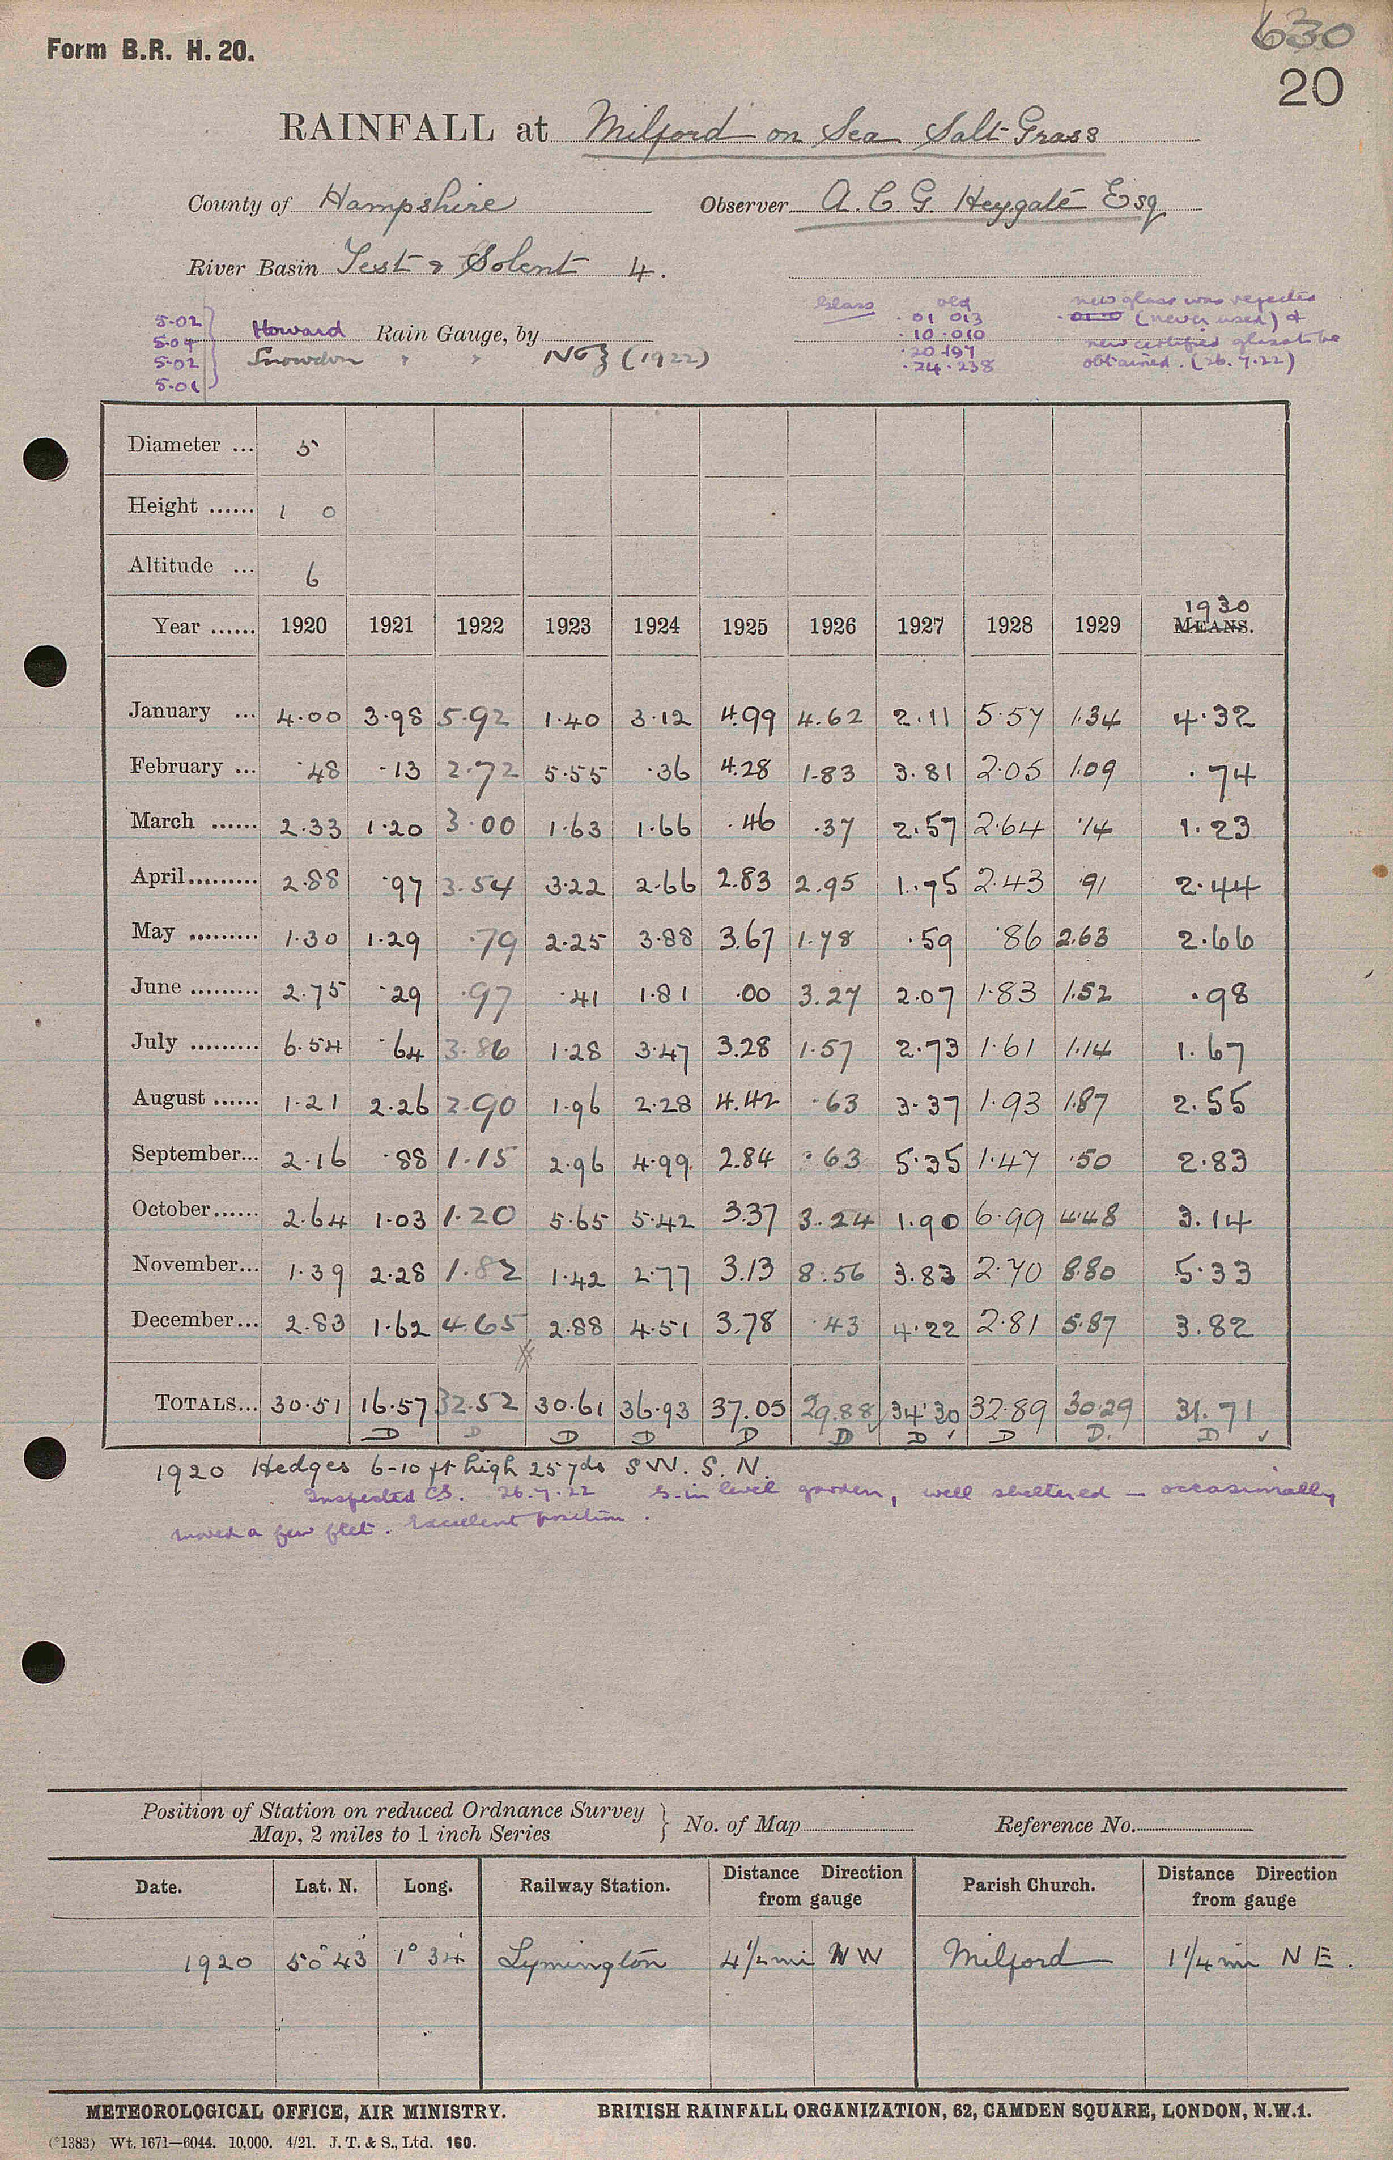 Form B.R. H. 20.
630
20
RAINFALL at Milford on Sea Salt Grass
County of Hampshire Observer A. C. G. Heygate Esq
River Basin Test & Solent 4.
Glass old new glass was rejected
5.02 Howard Rain Gauge, by .01 .013 (never used) &
5.04 .10 .010 new certified glass to be
5.02 Snowdon " " NG} (1922) .20 .197 obtained. (26.7.22)
5.01 .24 .238
Diameter ... 5
Height ...... 1 0
Altitude ... 6
Year ...... 1920 1921 1922 1923 1924 1925 1926 1927 1928 1929 1930 MEANS.
January ... 4.00 3.98 5.92 1.40 3.12 4.99 4.62 2.11 5.57 1.34 4.32
February ... .48 .13 2.72 5.55 .36 4.28 1.83 3.81 2.05 1.09 .74
March ...... 2.33 1.20 3.00 1.63 1.66 .46 .37 2.57 2.64 .14 1.23
April ......... 2.88 .97 3.54 3.22 2.66 2.83 2.95 1.75 2.43 .91 2.44
May ......... 1.30 1.29 .79 2.25 3.88 3.67 1.78 .59 .86 2.63 2.66
June ......... 2.75 .29 .97 .41 1.81 .00 3.27 2.07 1.83 1.52 .98
July ......... 6.54 .64 3.86 1.28 3.47 3.28 1.57 2.73 1.61 1.14 1.67
August ...... 1.21 2.26 2.90 1.96 2.28 4.42 .63 3.37 1.93 1.87 2.55
September... 2.16 .88 1.15 2.96 4.99 2.84 .63 5.35 1.47 .50 2.83
October ...... 2.64 1.03 1.20 5.65 5.42 3.37 3.24 1.90 6.99 4.48 3.14
November... 1.39 2.28 1.82 1.42 2.77 3.13 8.56 3.83 2.70 8.80 5.33
December... 2.83 1.62 4.65 2.88 4.51 3.78 .43 4.22 2.81 5.87 3.82
TOTALS... 30.51 16.57 32.52 30.61 36.93 37.05 29.88 34.30 32.89 30.29 31.71
D D D D D D D D D. D
1920 Hedges 6-10 ft high 25 yds SW. S. N.
Inspected CS. 26.7.22 S. in level garden, well sheltered — occasionally
moved a few feet. Excellent position.
Position of Station on reduced Ordnance Survey
Map, 2 miles to 1 inch Series } No. of Map Reference No.
Date. Lat. N. Long. Railway Station. Distance Direction from gauge Parish Church. Distance Direction from gauge
1920 50° 43' 1° 34' Lymington 4½ mi NW Milford 1¼ mi NE.
METEOROLOGICAL OFFICE, AIR MINISTRY. BRITISH RAINFALL ORGANIZATION, 62, CAMDEN SQUARE, LONDON, N.W.1.
(*1383) Wt. 1671—6044. 10,000. 4/21. J. T. & S., Ltd. 160.